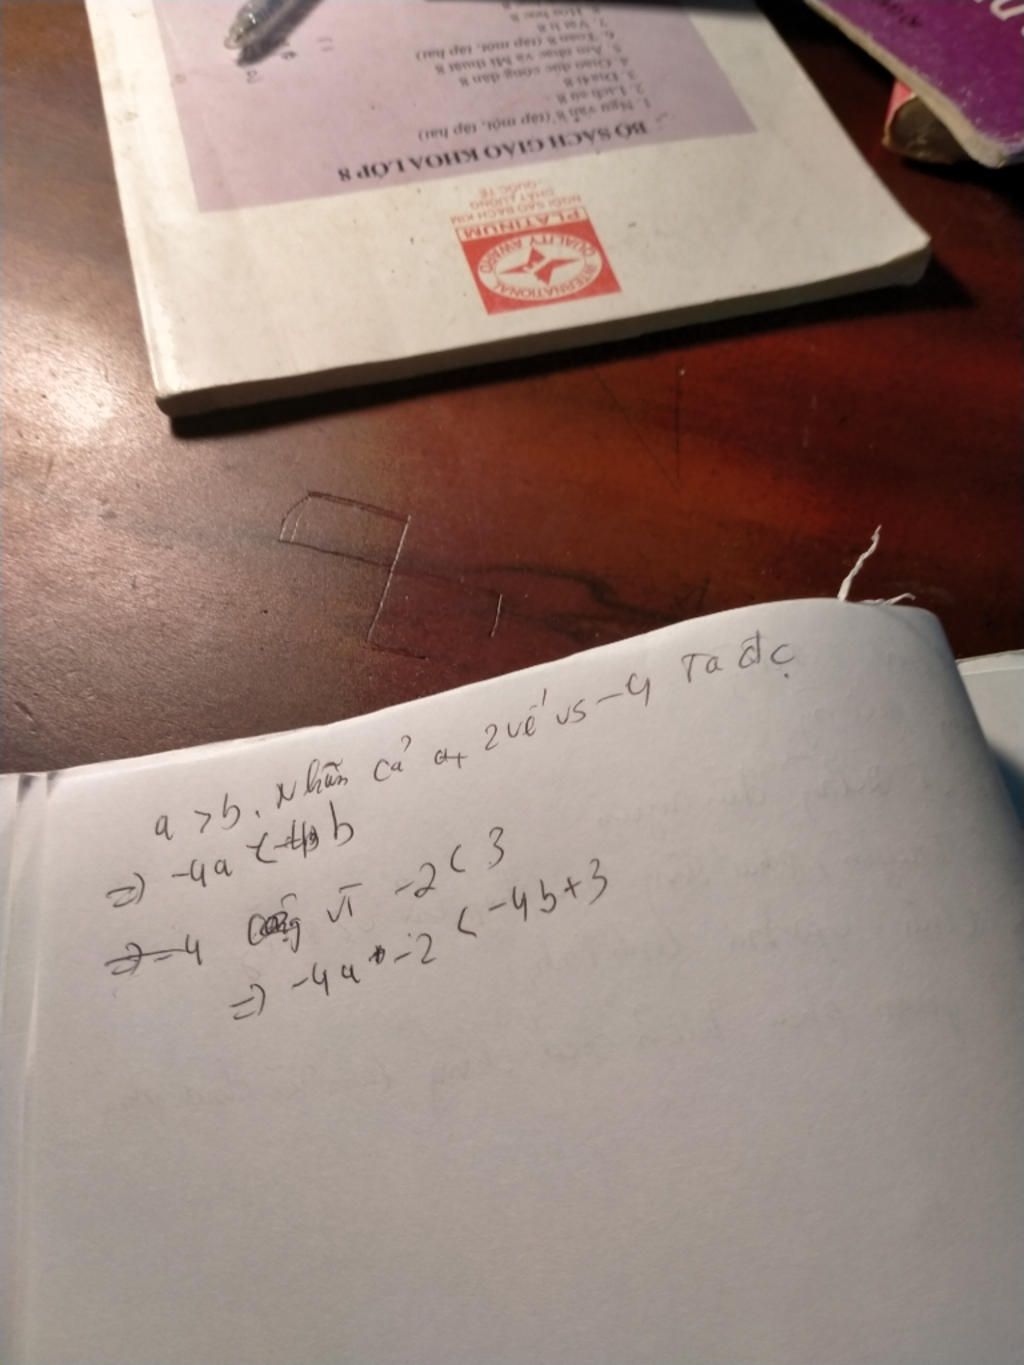 8. Hóa học 8
7. Vật lí 8
6. Toán 8 (tập một, tập hai)
5. Âm nhạc và Mĩ thuật 8
4. Giáo dục công dân 8
3. Địa lí 8
2. Lịch sử 8
1. Ngữ văn 8 (tập một, tập hai)
BỘ SÁCH GIÁO KHOA LỚP 8
NGÔI SAO BẠCH KIM
CHẤT LƯỢNG
QUỐC TẾ
PLATINUM
QUALITY AWARD
INTERNATIONAL
a > b. Nhân cả 2 vế vs -4 Ta đc
=> -4a < b
=> -4 cộng vì -2 < 3
=> -4a -2 < -4b+3